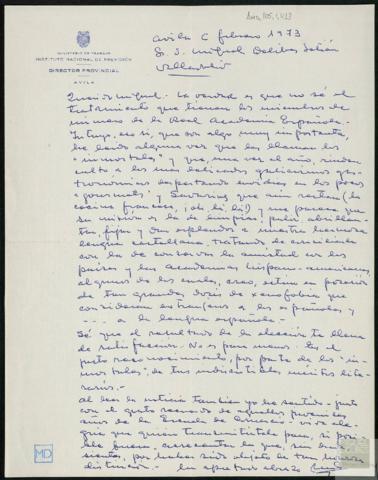 AMD, 105, 1, 413
MINISTERIO DE TRABAJO
INSTITUTO NACIONAL DE PREVISIÓN
DIRECTOR PROVINCIAL
AVILA
Avila 6 febrero 1973
Sr. D. Miguel Delibes Setién
Valladolid
Querido Miguel: La verdad es que no sé el
tratamiento que tienen los miembros de
número de la Real Academia Española.
Intuyo, eso sí, que son algo muy importante,
he leido alguna vez que les llaman los
"inmortales" y que, una vez al año, rinden
culto a los más delicados
despertando envidias en los pocos
"gourmets" y que aún restan (la
cocina francesa ¡oh, là, là!) me parece que
su misión es la de limpiar, pulir,
fijar y dar esplendor a nuestra hermosa
lengua castellana, tratando de
con la de conservar la amistad con los
países y las academias hispano-americanas,
algunos de los cuales, creo, están en posesión
de tan grandes dosis de xenofobia que
consideran extranjeros a los españoles y
---- a la lengua española.-
Sé que el resultado de la elección te llena
de satisfacción. No es para menos. Es el
justo reconocimiento, por parte de los "in-
mortales", de tus indiscutibles méritos lite-
rarios.-
Al leer la noticia también yo he sentido - junto
con el grato recuerdo de aquellos juveniles
años de la Escuela de Comercio - viva ale-
gría que quiero transmitirte para, si posi-
ble fuera, acrecentar la que, sin duda,
sientes, por haber sido objeto de tan honrosa
distinción.- Un apretado abrazo
MD